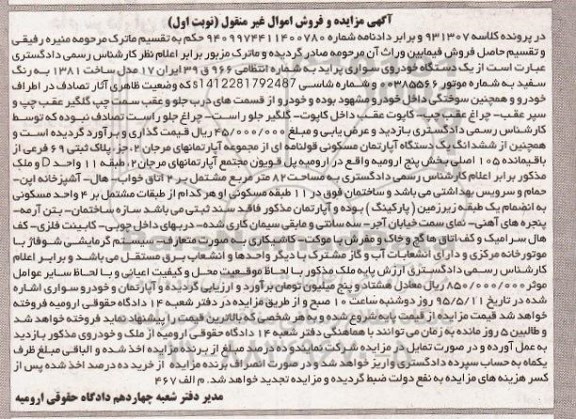 آگهی مزایده و فروش اموال غیر منقول (نوبت اول)
در پرونده کلاسه ۹۳۱۳۰۷ و برابر دادنامه شماره ۹۴۰۹۹۷۴۴۱۱۴۰۰۷۸۰ حکم به تقسیم ماترک مرحومه منیره رفیقی
و تقسیم حاصل فروش فیمابین وراث آن مرحومه صادر گردیده و ماترک مزبور برابر اعلام نظر کارشناس رسمی دادگستری
عبارت است از یک دستگاه خودروی سواری پراید به شماره انتظامی ۹۶۶ ق ۳۹ ایران ۱۷ مدل ساخت ۱۳۸۱ به رنگ
سفید به شماره موتور ۰۰۳۸۵۵۶۶ و شماره شاسی s1412281792487 که وضعیت ظاهری آثار تصادف در اطراف
خودرو و همچنین سوختگی داخل خودرو مشهود بوده و خودرو از قسمت های درب جلو و عقب سمت چپ گلگیر عقب چپ و
سپر عقب- چراغ عقب چپ- کاپوت عقب- داخل کاپوت- گلگیر جلو راست- چراغ جلو راست تصادف نبوده که توسط
کارشناس رسمی دادگستری بازدید و عرض یابی و مبلغ ۴۵/۰۰۰/۰۰۰ ریال قیمت گذاری و برآورد گردیده است و
همچنین از ششدانگ یک دستگاه آپارتمان مسکونی قولنامه ای از مجموعه آپارتمانهای مرجان ۲، جز، پلاک ثبتی ۶۹ فرعی از
باقیمانده ۱۰۵ اصلی بخش پنج ارومیه واقع در ارومیه پل قویون مجتمع آپارتمانهای مرجان ۲، طبقه ۱۱ واحد D و ملک
مذکور برابر اعلام کارشناس رسمی دادگستری به مساحت ۸۲ متر مربع مشتمل بر ۲ اتاق خواب- هال- آشپزخانه اپن-
حمام و سرویس بهداشتی می باشد و ساختمان فوق در ۱۱ طبقه مسکونی او هر کدام از طبقات مشتمل بر ۴ واحد مسکونی
به انضمام یک طبقه زیرزمین (پارکینگ) بوده و آپارتمان مذکور فاقد سند ثبتی می باشد سازه ساختمان- بتن آرمه-
پنجره های آهنی- نمای سمت خیابان آجر- سه سانتی و مابقی سیمان کاری شده- دربهای داخل چوبی- کابینت فلزی- کف
هال سرامیک و کف اتاق ها گچ و خاک و مفرش با موکت- کاشیکاری به صورت متعارف- سیستم گرمایشی شوفاژ با
موتورخانه مرکزی و دارای انشعابات آب و گاز مشترک با دیگر واحدها و انشعاب برق مستقل می باشد و برابر اعلام
کارشناس رسمی دادگستری ارزش پایه ملک مذکور با لحاظ موقعیت محل و کیفیت اعیانی و با لحاظ سایر عوامل
موثر ۸۵۰/۰۰۰/۰۰۰ ریال معادل هشتاد و پنج میلیون تومان برآورد و ارزیابی گردیده و آپارتمان و خودرو سواری اشاره
شده در تاریخ ۹۵/۵/۱۱ روز دوشنبه ساعت ۱۰ صبح و از طریق مزایده در دفتر شعبه ۱۴ دادگاه حقوقی ارومیه فروخته
خواهد شد قیمت مزایده از قیمت پایه شروع شده و به هر شخصی که بالاترین قیمت را پیشنهاد نماید فروخته خواهد شد
و طالبین ۵ روز مانده به زمان می توانند با هماهنگی دفتر شعبه ۱۴ دادگاه حقوقی ارومیه از ملک و خودروی مذکور بازدید
به عمل آورده و در صورت تمایل در مزایده شرکت نمایند و ده درصد مبلغ از برنده مزایده اخذ شده و الباقی مبلغ ظرف
یکماه به حساب سپرده دادگستری واریز خواهد شد و در صورت انصراف برنده مزایده از خرید ده درصد اخذ شده پس از
کسر هزینه های مزایده به نفع دولت ضبط گردیده و مزایده تجدید خواهد شد. م الف ۴۶۷
مدیر دفتر شعبه چهاردهم دادگاه حقوقی ارومیه